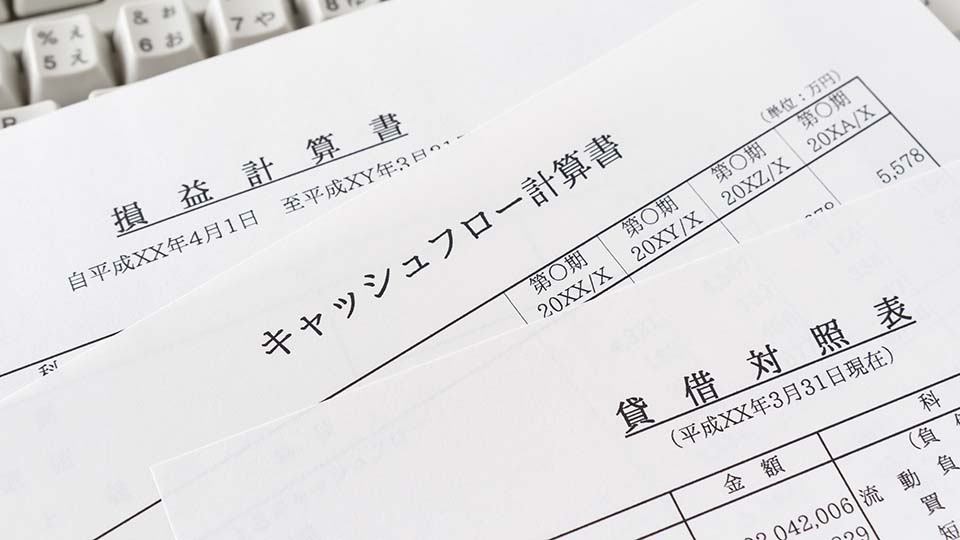 % え
5 え
& ぉ
6 お
7 や
損益計算書
自平成XX年4月1日 至平成XY年3月31
キャッシュフロー計算書
(単位：万円)
第〇期 第〇期 第〇期 第〇期
20XX/X 20XY/X 20XZ/X 20XA/X
5,578
貸借対照表
(平成XX年3月31日現在)
金額 科
(負
流動負
042,006 買
短